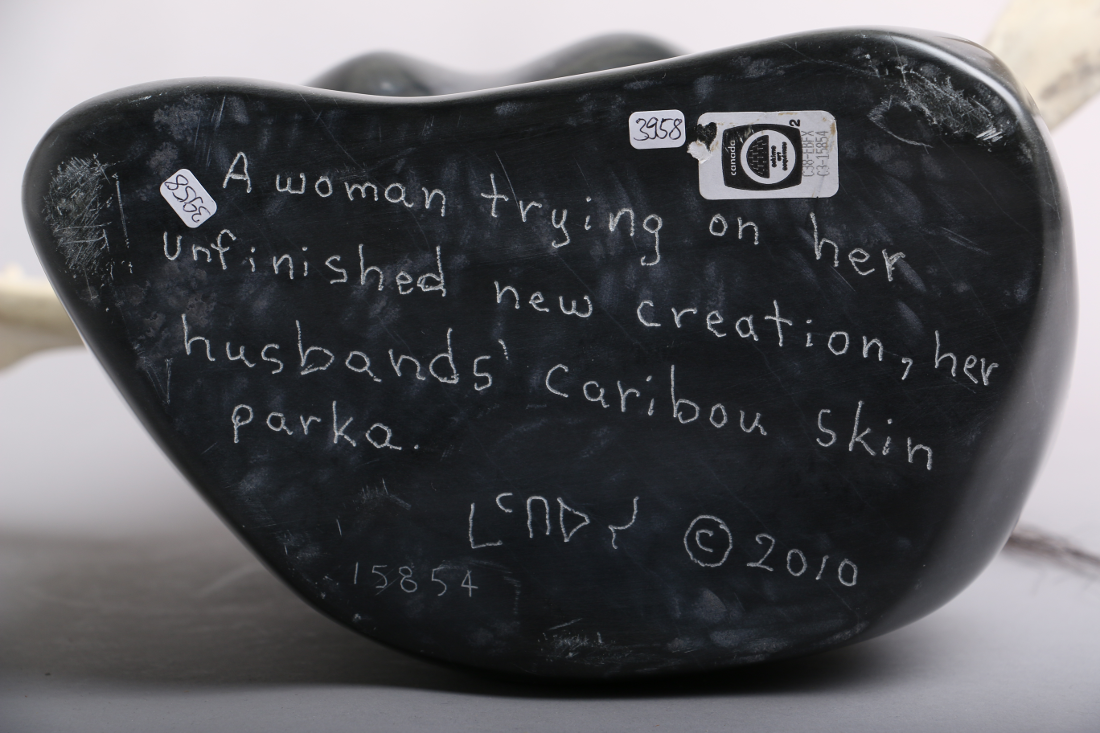 3958
canada
2
C3R-EBFX
C3-15854
3958
A woman trying on her
unfinished new creation, her
husbands' caribou skin
parka.
ᒪᑦᑎᐅᓯ © 2010
15854